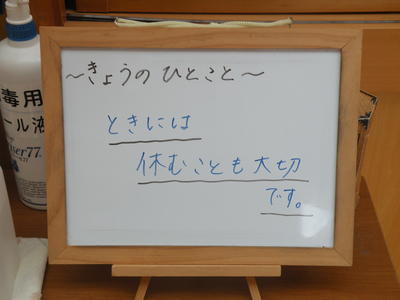 ～きょうの ひとこと～
ときには
休むことも大切
です。
毒用
ール液
77